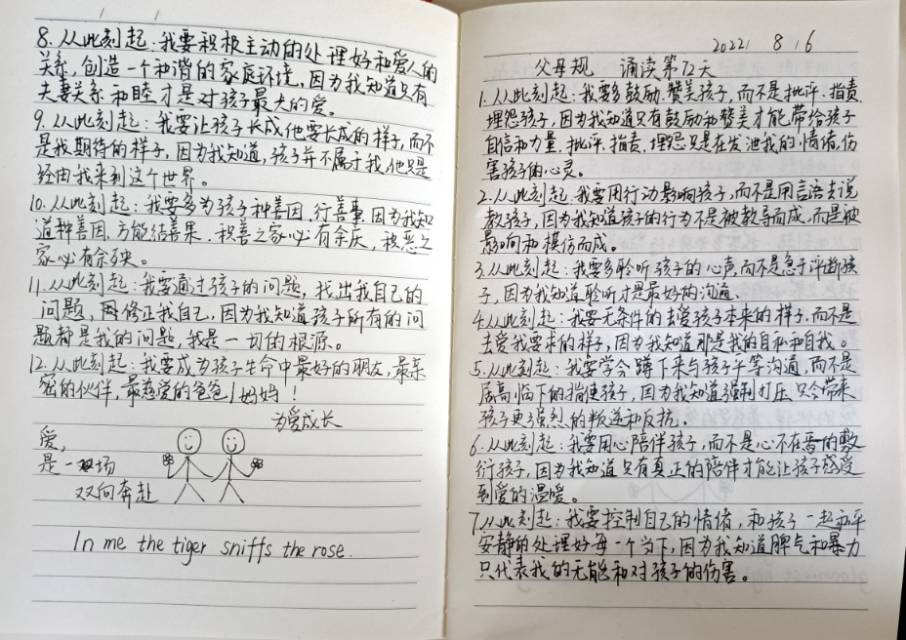 8.从此刻起:我要积极主动的处理好和爱人的
关系,创造一个和谐的家庭环境,因为我知道只有
夫妻关系和睦才是对孩子最大的爱。
9.从此刻起:我要让孩子长成他要长成的样子,而不
是我期待的样子,因为我知道,孩子并不属于我,他只是
经由我来到这个世界。
10.从此刻起:我要多为孩子种善因,行善事,因为我知
道种善因,方能结善果,积善之家必有余庆,积恶之
家必有余殃。
11.从此刻起:我要通过孩子的问题,找出我自己的
问题,修正我自己,因为我知道孩子所有的问
题都是我的问题,我是一切的根源。
12.从此刻起:我要成为孩子生命中最好的朋友,最亲
密的伙伴,最慈爱的爸爸/妈妈!
为爱成长
爱,
是一场
双向奔赴
In me the tiger sniffs the rose.
2022/8/6
父母规 诵读第72天
1.从此刻起:我要多鼓励、赞美孩子,而不是批评、指责、
埋怨孩子,因为我知道只有鼓励和赞美才能带给孩子
自信和力量,批评、指责、埋怨只是在发泄我的情绪,伤
害孩子的心灵。
2.从此刻起:我要用行动影响孩子,而不是用言语去说
教孩子,因为我知道孩子的行为不是被教导而成,而是被
影响和模仿而成。
3.从此刻起:我要多聆听孩子的心声,而不是急于评断孩
子,因为我知道聆听才是最好的沟通。
4.从此刻起:我要无条件的去爱孩子本来的样子,而不是
去爱我要求的样子,因为我知道那是我的自私和自我。
5.从此刻起:我要学会蹲下来与孩子平等沟通,而不是
居高临下的指使孩子,因为我知道强制打压只会带来
孩子更强烈的叛逆和反抗。
6.从此刻起:我要用心陪伴孩子,而不是心不在焉的敷
衍孩子,因为我知道只有真正的陪伴才能让孩子感受
到爱的温暖。
7.从此刻起:我要控制自己的情绪,和孩子一起和平
安静的处理好每一个当下,因为我知道脾气和暴力
只代表我的无能和对孩子的伤害。